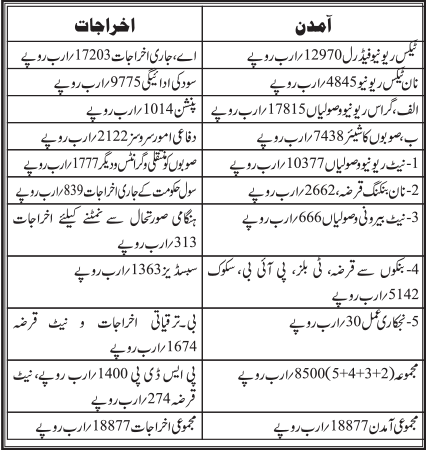 آمدن
اخراجات
ٹیکس ریونیو فیڈرل 12970؍ارب روپے
اے، جاری اخراجات 17203؍ارب روپے
نان ٹیکس ریونیو 4845؍ارب روپے
سود کی ادائیگی 9775؍ارب روپے
الف، گراس ریونیو وصولیاں 17815؍ارب روپے
پنشن 1014؍ارب روپے
ب، صوبوں کا شیئر 7438؍ارب روپے
دفاعی امور سروسز 2122؍ارب روپے
1- نیٹ ریونیو وصولیاں 10377؍ارب روپے
صوبوں کو منتقلی و گرانٹس و دیگر 1777؍ارب روپے
2- نان بنکنگ قرضہ، 2662؍ارب روپے
سول حکومت کے جاری اخراجات 839؍ارب روپے
3- نیٹ بیرونی وصولیاں 666؍ارب روپے
ہنگامی صورتحال سے نمٹنے کیلئے اخراجات
313؍ارب روپے
4- بنکوں سے قرضہ، ٹی بلز، پی آئی بی، سکوک
5142؍ارب روپے
سبسڈیز 1363؍ارب روپے
5- نجکاری عمل 30؍ارب روپے
بی۔ ترقیاتی اخراجات و نیٹ قرضہ
1674؍ارب روپے
مجموعہ (2+3+4+5) 8500؍ارب روپے
پی ایس ڈی پی 1400؍ارب روپے، نیٹ
قرضہ 274؍ارب روپے
مجموعی آمدن 18877؍ارب روپے
مجموعی اخراجات 18877؍ارب روپے